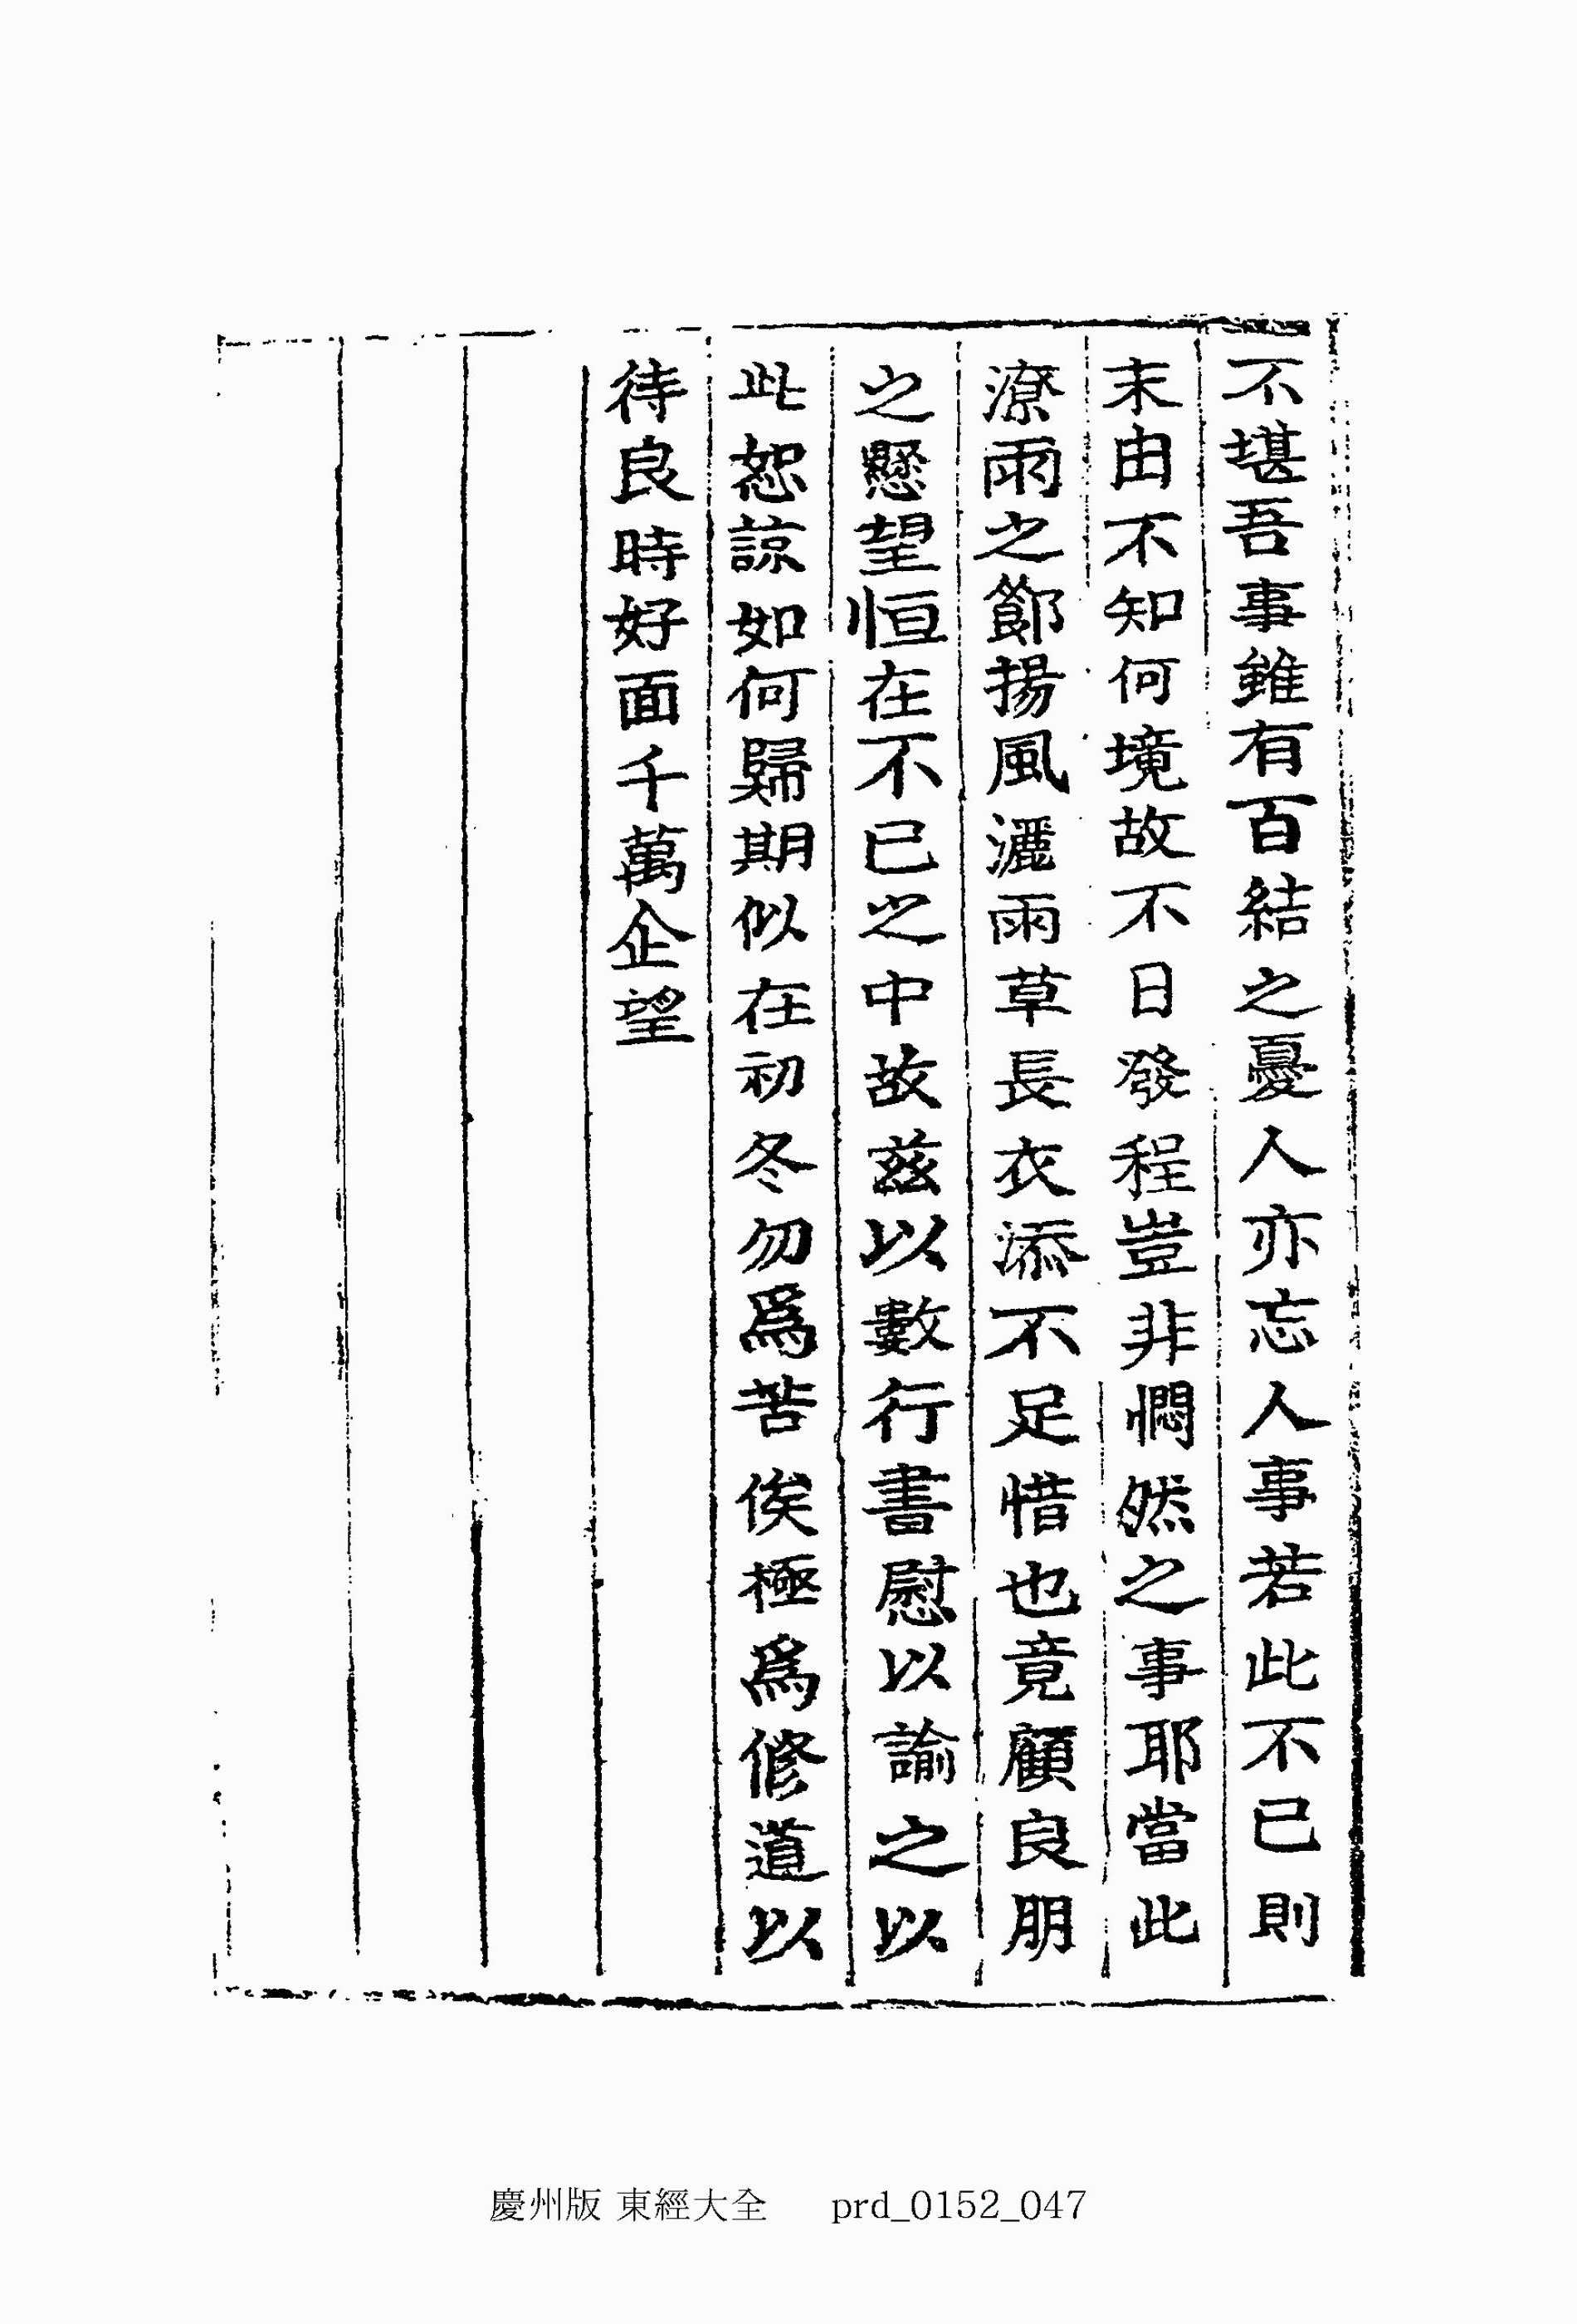 不堪吾事雖有百結之憂人亦忘人事若此不已則
末由不知何境故不日發程豈非憫然之事耶當此
潦雨之節揚風灑雨草長衣添不足惜也竟顧良朋
之懸望恒在不已之中故玆以數行書慰以諭之以
此恕諒如何歸期似在初冬勿爲苦俟極爲修道以
待良時好面千萬企望
慶州版 東經大全 prd_0152_047